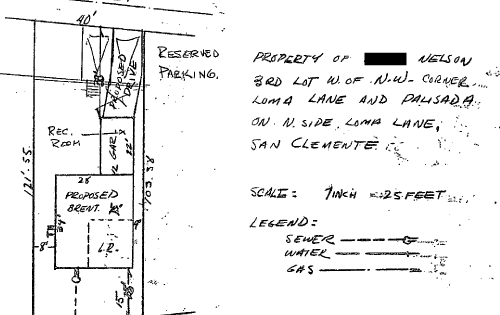 40'
RESERVED
PARKING.
PROPOSED
DRIVE
REC.
ROOM
2 CAR
22'
121'.55
103.38
28'
PROPOSED
8RENT.
24'
8'
L.R.
15'
PROPERTY OF NELSON
3RD LOT W. OF N.W. CORNER
LOMA LANE AND PALISADA
ON N. SIDE LOMA LANE,
SAN CLEMENTE
SCALE: 1INCH = 25 FEET
LEGEND:
SEWER
WATER
GAS